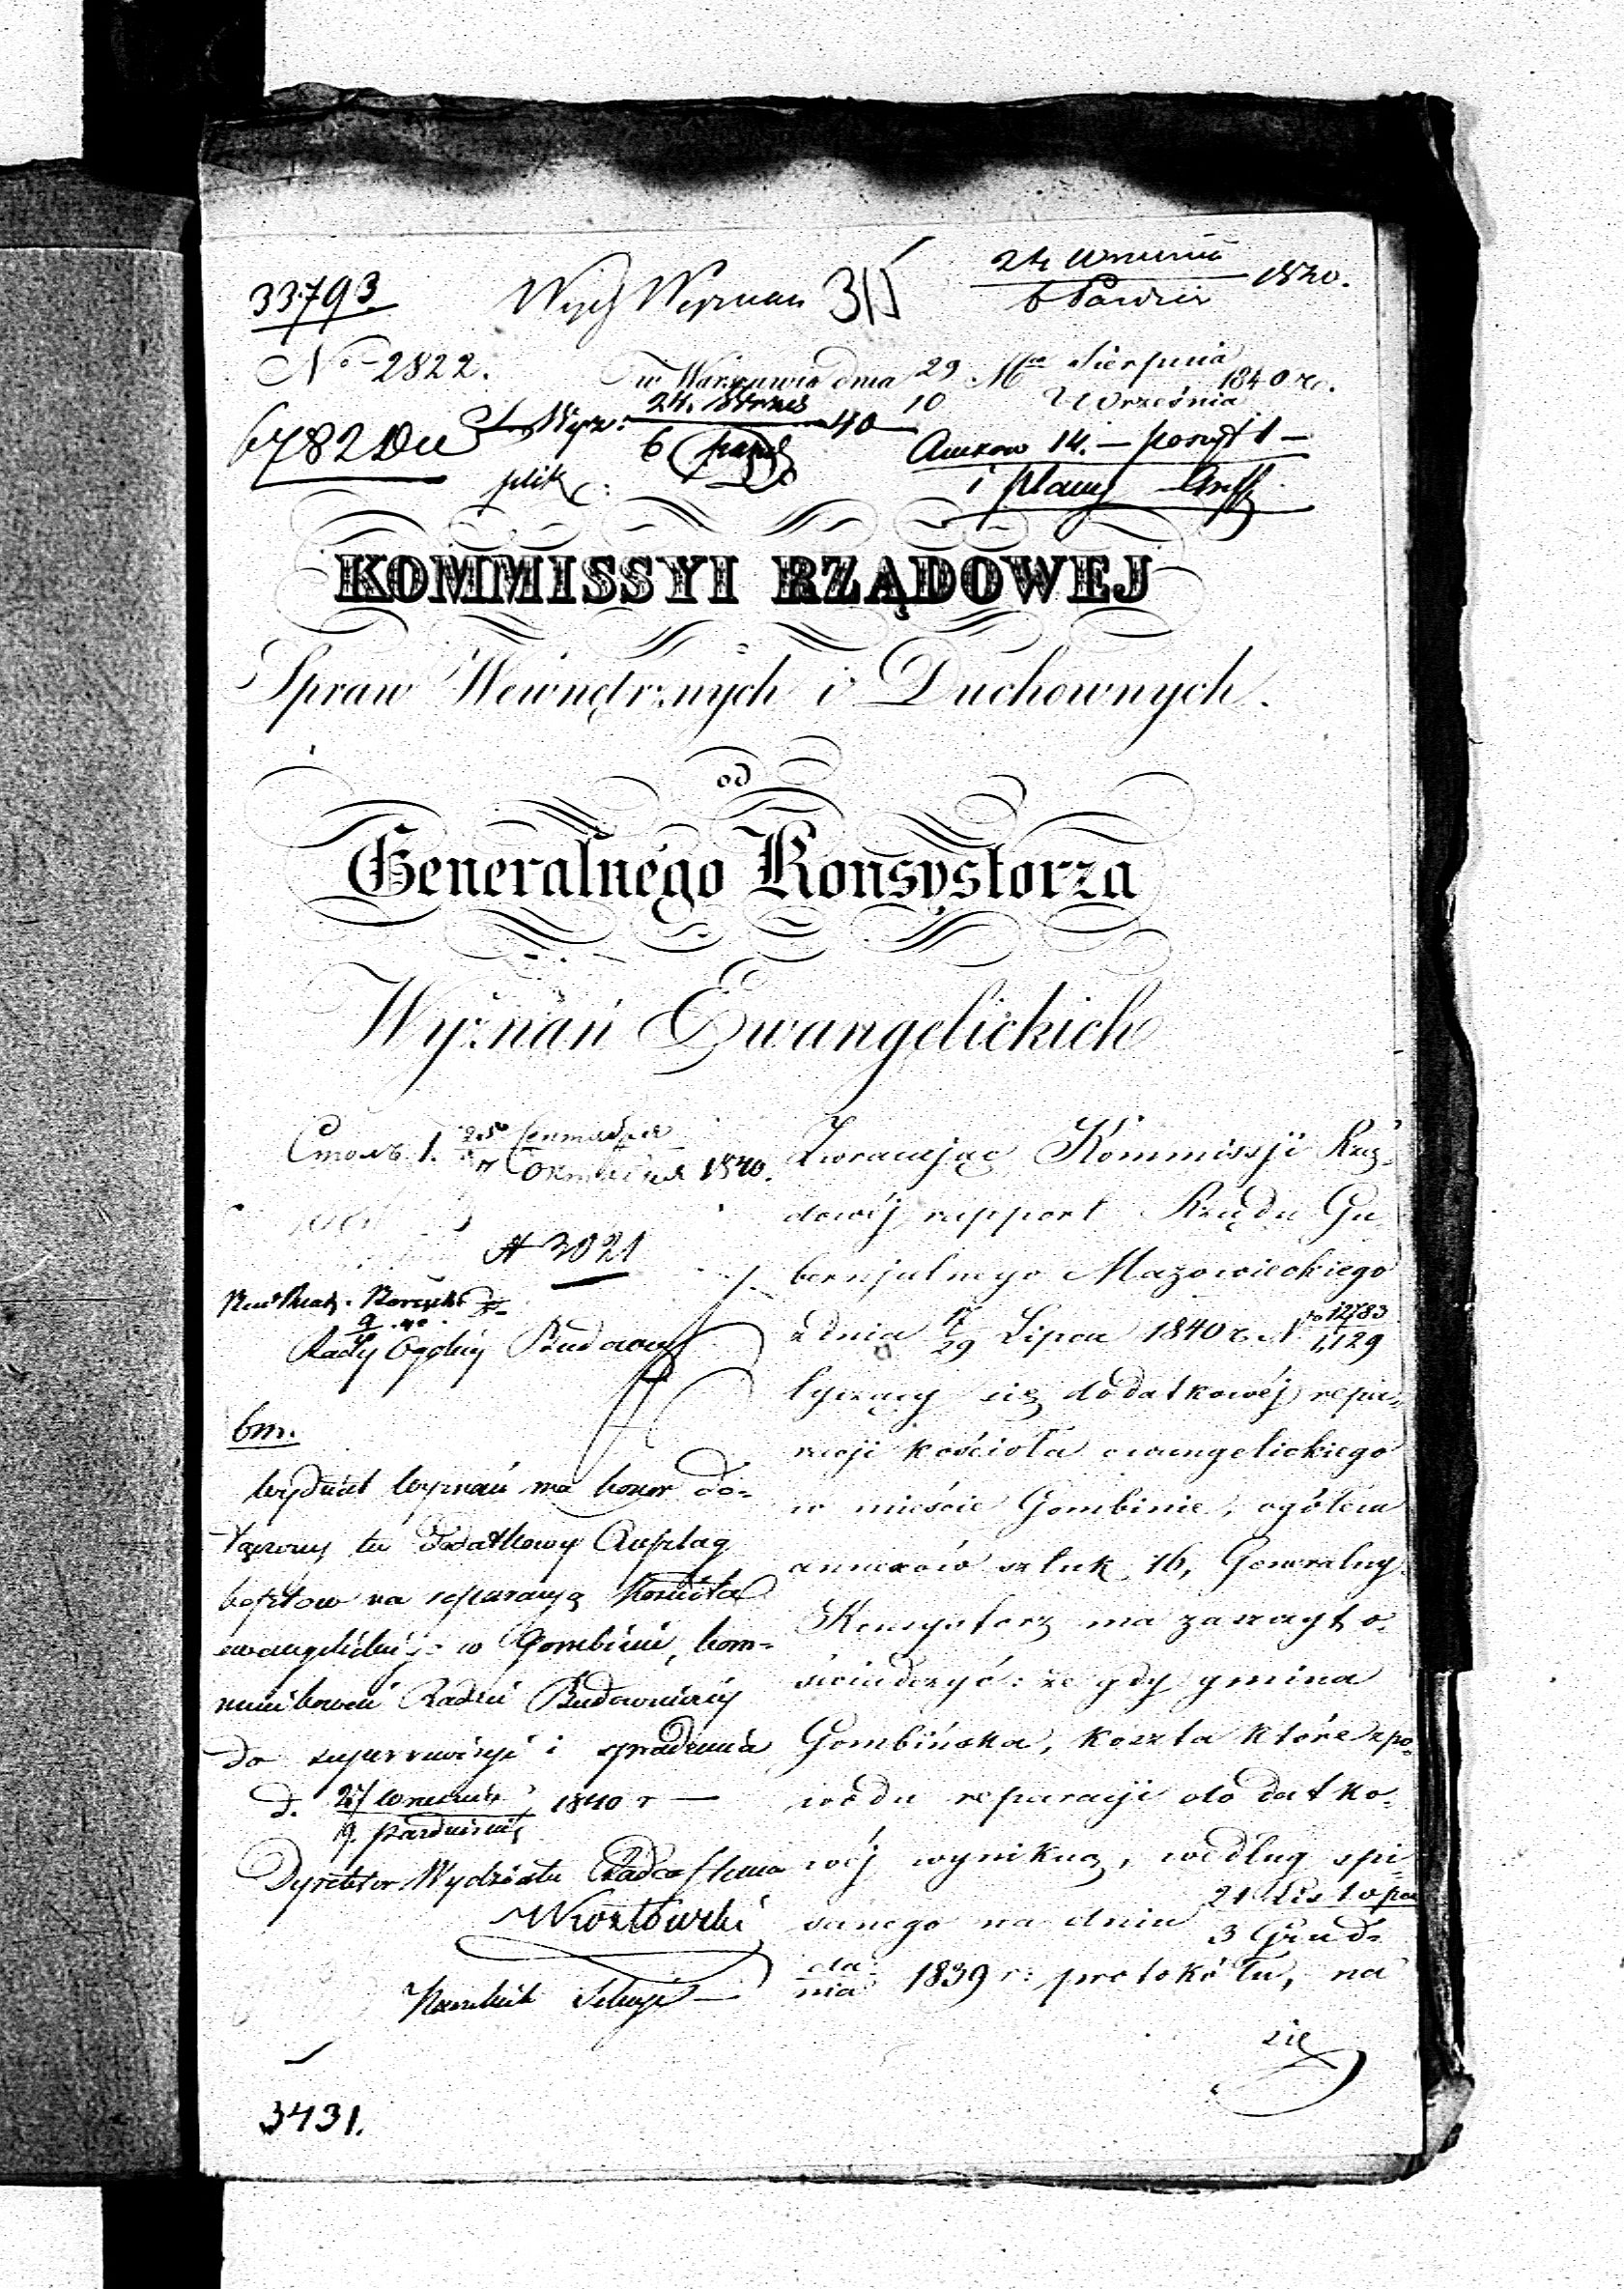 33793
Wydz Wyznań
24 Września
6 Paździer 1840.
No 2822.
w Warszawie dnia 29 Sierpnia
10 Września 1840 r.
6782
24. Wrześ
6 paźdz 40
plik
Anexow 14. — poszyt 1 —
i plany
KOMMISSYI RZĄDOWEJ
Spraw Wewnętrznych i Duchownych.
od
Generalnego Konsystorza
Wyznań Ewangelickich
Столъ 1. 25 Сентября
7 Октября 1840.
№ 3021
Rady Ogólnej Budown
bm.
Wydział Wyznań ma honor do-
łączony tu dodatkowy Anszlag
kosztow na reparacyą Kościoła
ewangelickiego w Gombinie, kom-
munikować Radzie Budowniczej
do superrewizyi i sprawdzenia
d. 27 Września 1840 r —
9. Października
Dyrektor Wydziału Radca Stanu
Naczelnik Sekcyi
3431.
Zwracając Kommissji Rzą-
dowéj rapport Rządu Gu
bernjalnego Mazowieckiego
z dnia 17/29 Lipca 1840 r. No 12783/1,129
tyczący się dodatkowéj repa-
racji kościoła ewangelickiego
w mieście Gombinie, ogółem
annexów sztuk 16, Generalny
Konsystorz ma zaszczyt o-
świadczyć: że gdy gmina
Gombińska, koszta które z po-
wodu reparacyi dodatko-
wéj wynikną, według spi-
sanego na dniu 21 Listopa
3 Grud-
da
nia 1839 r: protokółu, na
się